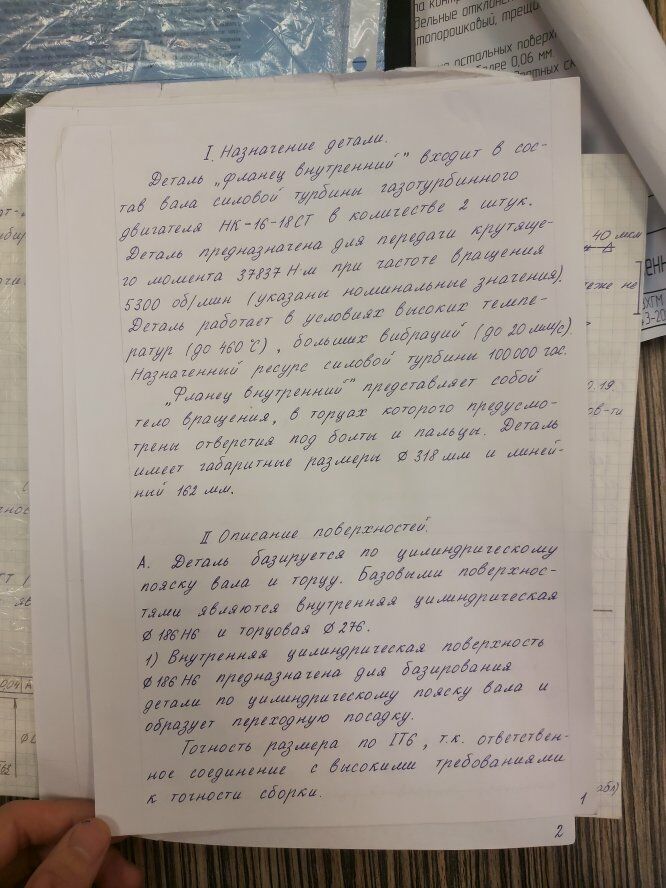 па контр
дельные отклонен
топорошковый, трещи
остальных поверхн
более 0,06 мм.
I. Назначение детали.
Деталь „фланец внутренний" входит в сос-
тав вала силовой турбины газотурбинного
двигателя НК-16-18СТ в количестве 2 штук.
Деталь предназначена для передачи крутяще-
го момента 37837 Н·м при частоте вращения
5300 об/мин (указаны номинальные значения).
Деталь работает в условиях высоких темпе-
ратур (до 460°С), больших вибраций (до 20 мм/с)
Назначенный ресурс силовой турбины 100 000 час.
„Фланец внутренний" представляет собой
тело вращения, в торцах которого предусмо-
трены отверстия под болты и пальцы. Деталь
имеет габаритные размеры ⌀ 318 мм и линей-
ный 162 мм.
II Описание поверхностей.
А. Деталь базируется по цилиндрическому
пояску вала и торцу. Базовыми поверхнос-
тями являются внутренняя цилиндрическая
⌀ 186 H6 и торцовая ⌀ 276.
1) Внутренняя цилиндрическая поверхность
⌀ 186 H6 предназначена для базирования
детали по цилиндрическому пояску вала и
образует переходную посадку.
Точность размера по IT6, т.к. ответствен-
ное соединение с высокими требованиями
к точности сборки.
2
1
40 мкм
теже не
0.19
ов-ти
0,04 А